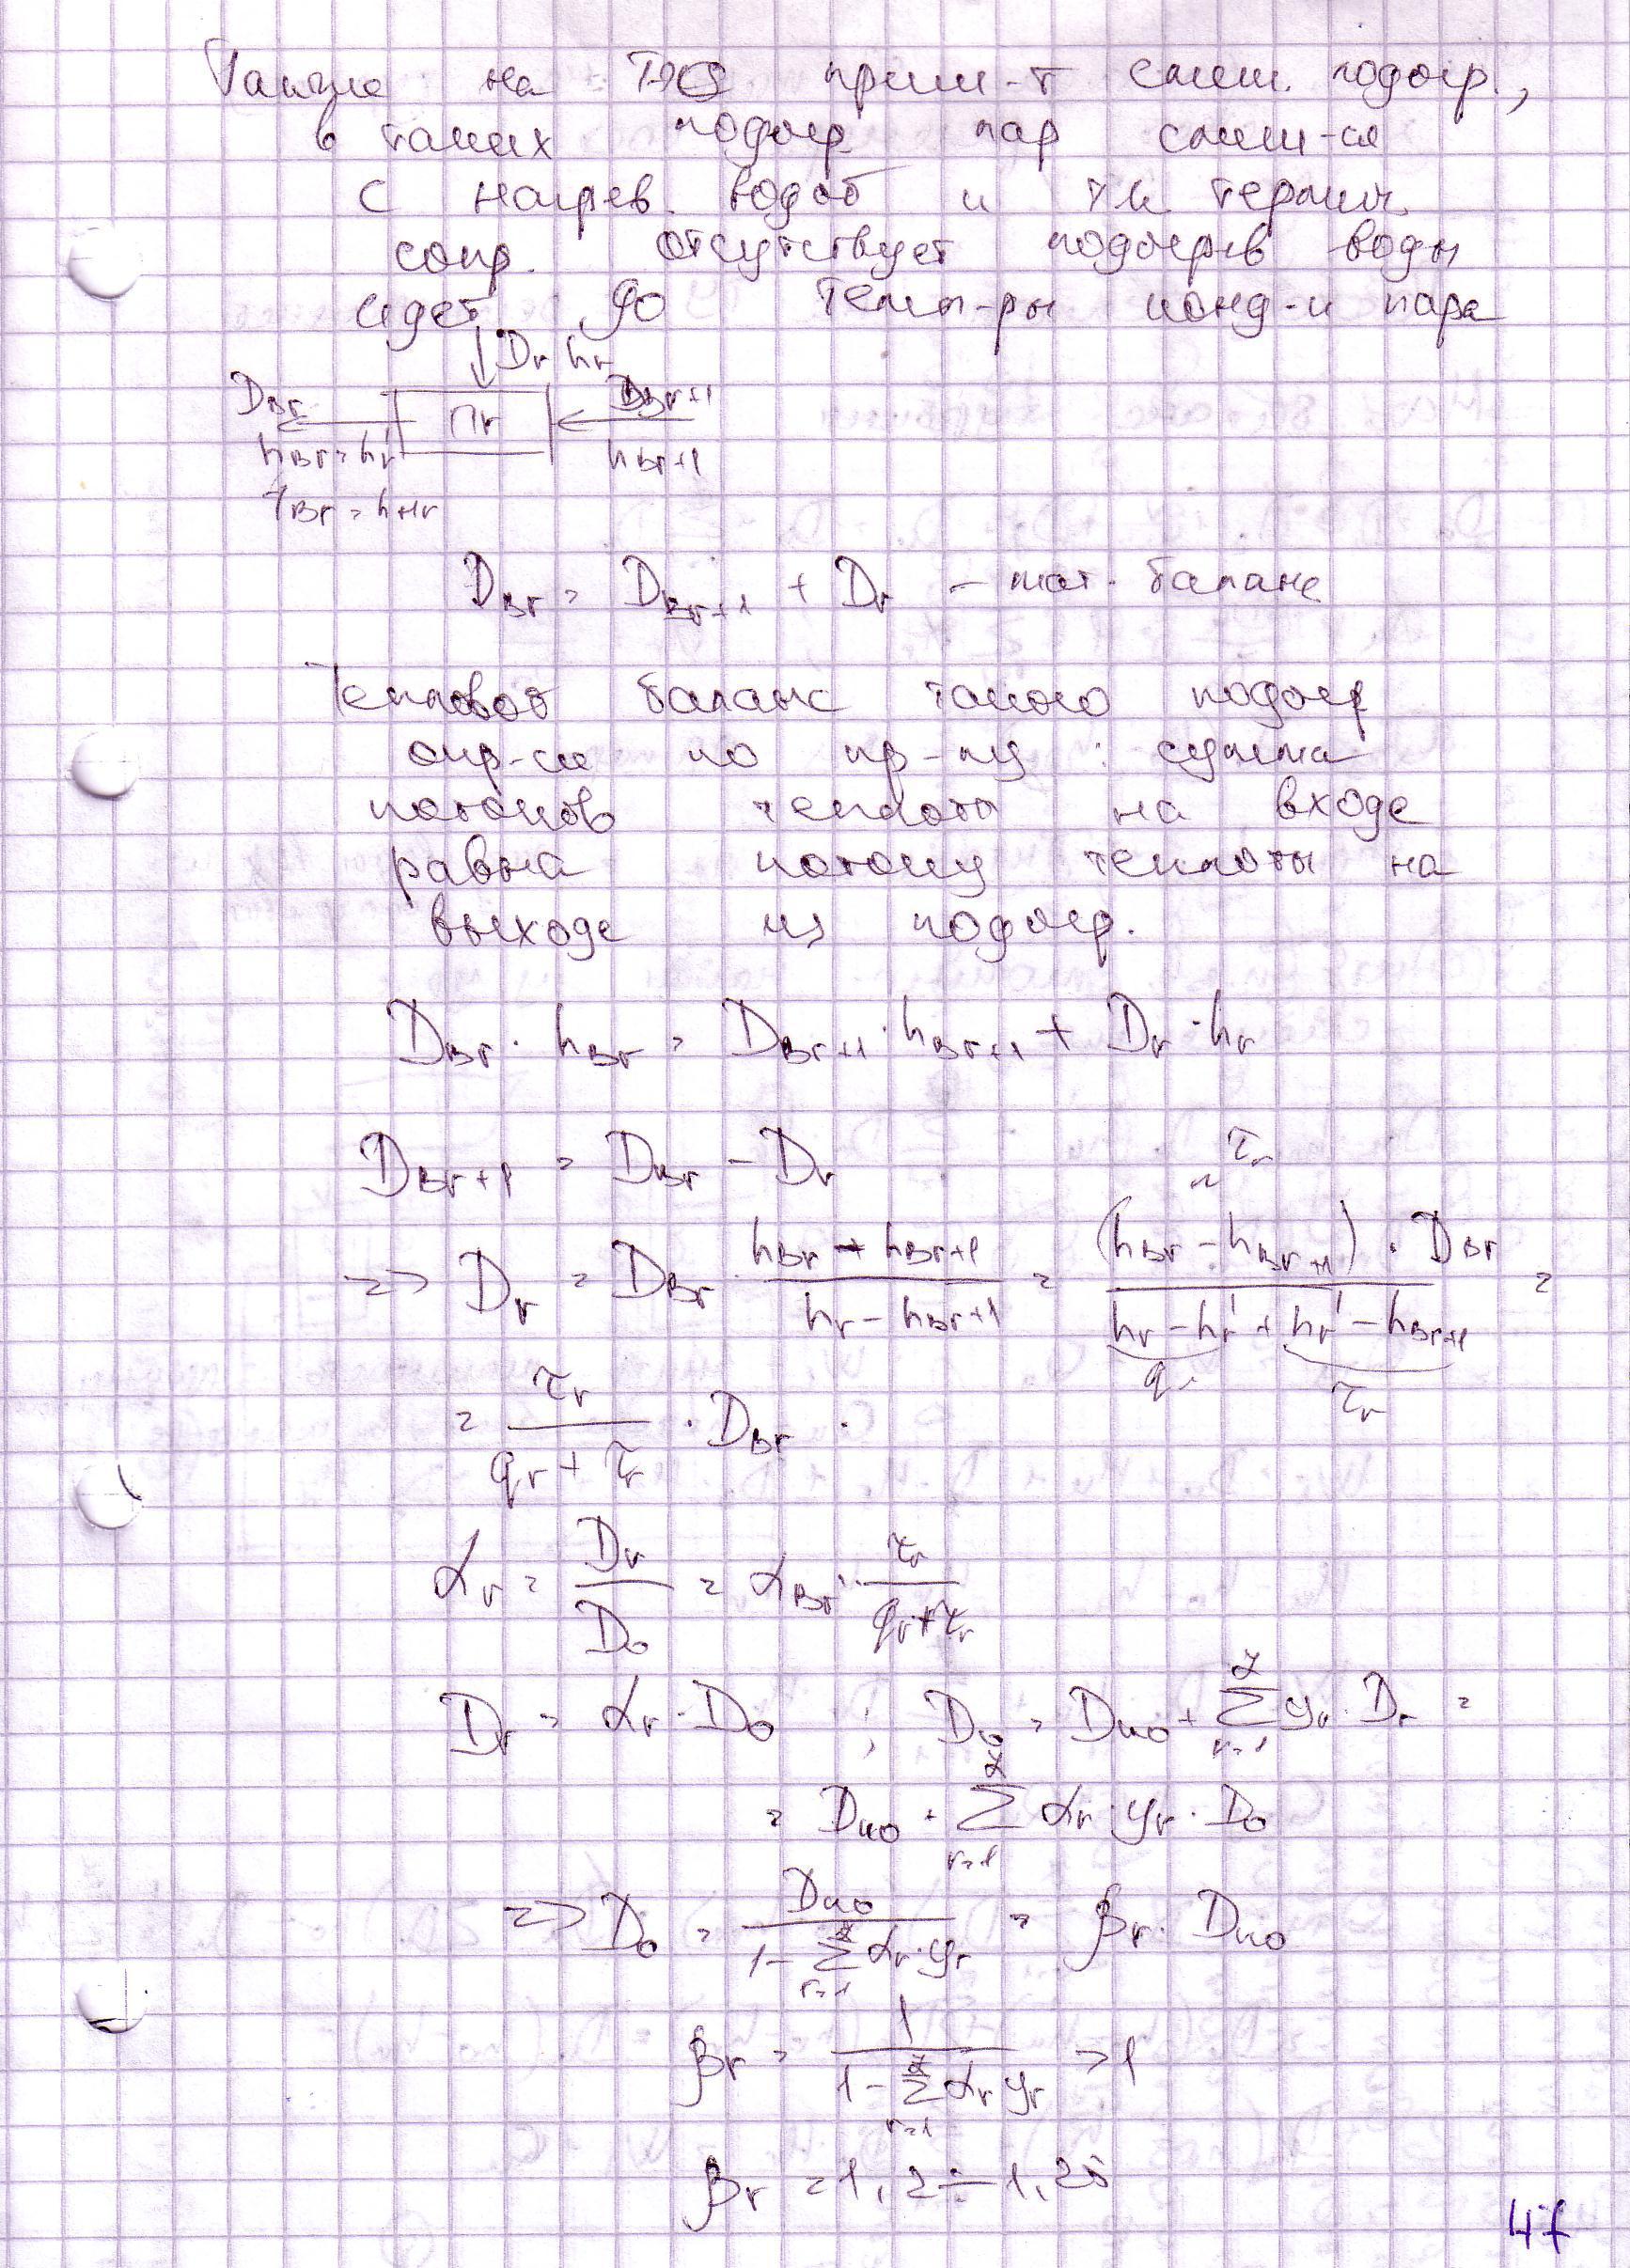 Также на ТЭС прим-т смеш. подогр.,
в таких подогр пар смеш-ся
с нагрев. водой и т.к термич.
сопр. отсутствует подогрев воды
идет до темп-ры конд-и пара
↓ Dr hr
Dвr Пr Dвr+1
hвr = hr' hвr+1
Dвr = Dвr+1 + Dr – мат. баланс
Тепловой баланс такого подогр
опр-ся по пр-пу : сумма
потоков теплоты на входе
равна потоку теплоты на
выходе из подогр.
Dвr · hвr = Dвr+1 · hвr+1 + Dr · hr
Dвr+1 = Dвr – Dr
τr
=> Dr = Dвr · (hвr – hвr+1) / (hr – hвr+1) = (hвr – hвr+1) · Dвr / (hr – hr' + hr' – hвr+1) =
qr τr
= τr / (qr + τr) · Dвr
αr = Dr / D0 = αвr · τr / (qr + τr)
Dr = αr · D0 ; D0 = Dко + Σ yr · Dr =
r=1
= Dко + Σ αr · yr · D0
r=1
=> D0 = Dко / (1 – Σ αr · yr) = βr · Dко
r=1
βr = 1 / (1 – Σ αr yr) > 1
r=1
βr = 1,2 ÷ 1,25
47